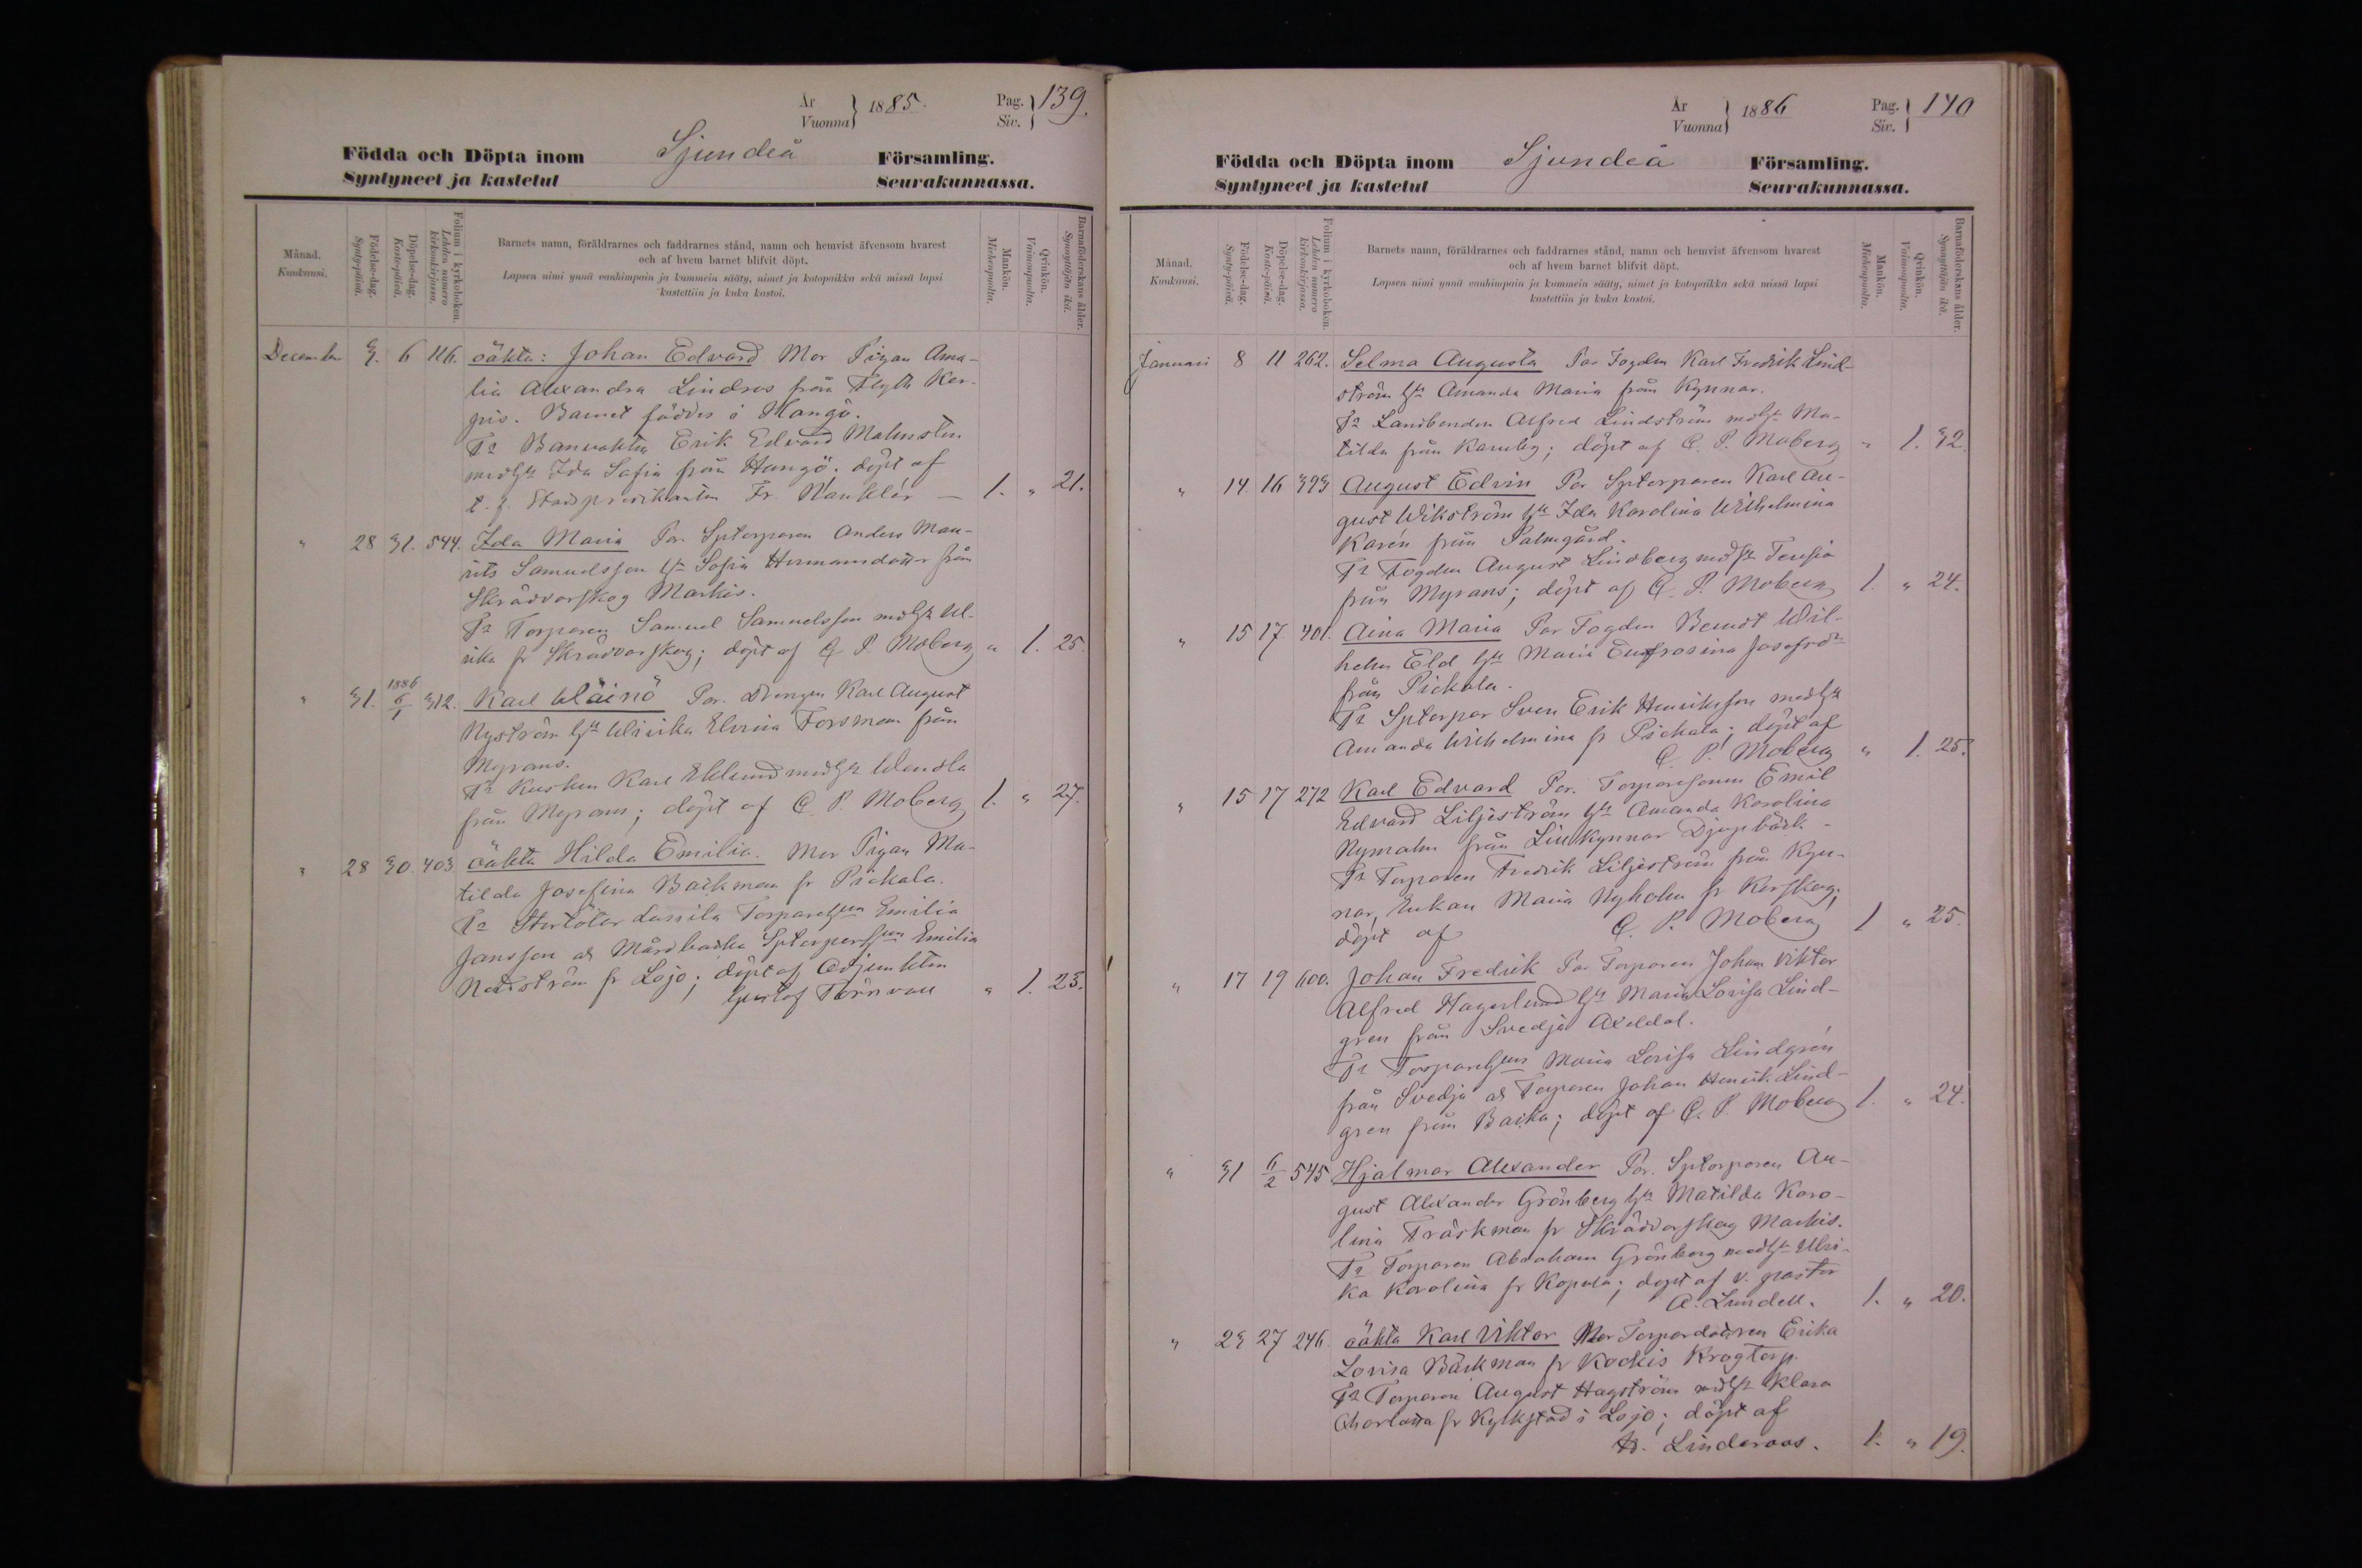 År
Vuonna
1885.
Pag.
Siv.
139.
Födda och Döpta inom Sjundeå Församling.
Syntyneet ja kastetut Seurakunnassa.
Månad.
Kuukausi.
Födelse-dag.
Synty-päivä.
Döpelse-dag.
Kaste-päivä.
Folium i kyrkoboken.
Lehden numero kirkonkirjassa.
Barnets namn, föräldrarnes och faddrarnes stånd, namn och hemvist äfvensom hvarest
och af hvem barnet blifvit döpt.
Lapsen nimi ynnä vanhimpain ja kummein sääty, nimet ja kotopaikka sekä missä lapsi
kastettiin ja kuka kastoi.
Mankön.
Miehenpuolta.
Qvinkön.
Vaimonpuolta.
Barnaföderskans ålder.
Synnyttäjän ikä.
December 3. 6 116. oäkta: Johan Edvard Mor Pigan Ama-
lia Alexandra Lindros från Flyth Kar-
pis. Barnet föddes i Hangö.
Fr Banvakten Erik Edvard Malmsten
mdhu Ida Sofia från Hangö; döpt af
t. f. Stadspredikanten Fr. — 1. " 21.
" 28 31. 544. Ida Maria Par Sptorparen Anders Mau-
rits Samuelsson hu Sofia Hermansdotter från
Skräddarskog Markis.
Fr Torparen Samuel Samuelsson mdhu Ul-
rika fr Skräddarskog; döpt af C. P. Moberg " 1. 25.
" 31. 1886 6/1 312. Karl Wäinö Par. Drengen Karl August
Nyström hu Ulrika Elvina Forsman från
Myrans.
Fr Kusken Karl Eklund mdhu Wendla
från Myrans; döpt af C. P. Moberg 1. " 27.
" 28 30. 403 oäkta Hilda Emilia. Mor Pigan Ma-
tilda Josefina Backman fr Pickala.
Fr Torparehun Emilia
Jansson o Mårdbacka Sptorparhun Emilia
fr Lojo; döpt af Adjunkten
Gustaf Törnvall " 1. 23.
År
Vuonna
1886
Pag.
Siv.
140
Födda och Döpta inom Sjundeå Församling.
Syntyneet ja kastetut Seurakunnassa.
Månad.
Kuukausi.
Födelse-dag.
Synty-päivä.
Döpelse-dag.
Kaste-päivä.
Folium i kyrkoboken.
Lehden numero kirkonkirjassa.
Barnets namn, föräldrarnes och faddrarnes stånd, namn och hemvist äfvensom hvarest
och af hvem barnet blifvit döpt.
Lapsen nimi ynnä vanhimpain ja kummein sääty, nimet ja kotopaikka sekä missä lapsi
kastettiin ja kuka kastoi.
Mankön.
Miehenpuolta.
Qvinkön.
Vaimonpuolta.
Barnaföderskans ålder.
Synnyttäjän ikä.
Januari 8 11 262. Selma Augusta Par Fogden Karl Fredrik Lind-
ström hu Amanda Maria från Kynnar.
Fr Landbonden Alfred Lindström mdhu Ma-
tilda från Karuby; döpt af C. P. Moberg " 1. 32.
" 14. 16 393 August Edvin Par Sptorparen Karl Au-
gust Wikström hu Ida Karolina Wilhelmina
Karén från Palmgård.
Fr Fogden August Lindberg mdhu Teresia
från Myrans; döpt af C. P. Moberg 1. " 24.
" 15 17 401. Aina Maria Par Fogden Berndt Wil-
helm Eld hu Maria Eufrosina Josefsdr
från Pickala.
Fr Sptorpar Sven Erik Henriksson mdhu
Amanda Wilhelmina fr Pickala; döpt af
C. P. Moberg " 1. 25.
" 15 17 272 Karl Edvard Par. Torparesonen Emil
Edvard Liljeström hu Amanda Karolina
Nymalm från Lillkynnar Djupbäck.
Fr Torparen Fredrik Liljeström från Kyn-
nar, Enkan Maria Nyholm fr Karskog;
döpt af C. P. Moberg 1 " 25.
" 17 19 600. Johan Fredrik Par Torparen Johan Viktor
Alfred Hagerlund hu Maria Lovisa Lind-
gren från Svedja Axeldal.
Fr Torparehun Maria Lovisa Lindgren
från Svedja o Torparen Johan Henrik Lind-
gren från Backa; döpt af C. P. Moberg 1. " 24.
" 31 6/2 545 Hjalmar Alexander Par. Sptorparen Au-
gust Alexander Grönberg hu Matilda Karo-
lina Träskman fr Skräddarskog Markis.
Fr Torparen Abraham Grönberg mdhu Ulri-
ka Karolina fr Kopula; döpt af v. pastor
A. Lundell. 1. " 20.
" 23 27 246. oäkta Karl Viktor Mor Torpardottren Erika
Lovisa Bäckman fr Kockis Krogtorp.
Fr Torparen August Hagström mdhu Klara
Charlotta fr Kyrkstad i Lojo; döpt af
Linderoos. 1. " 19.